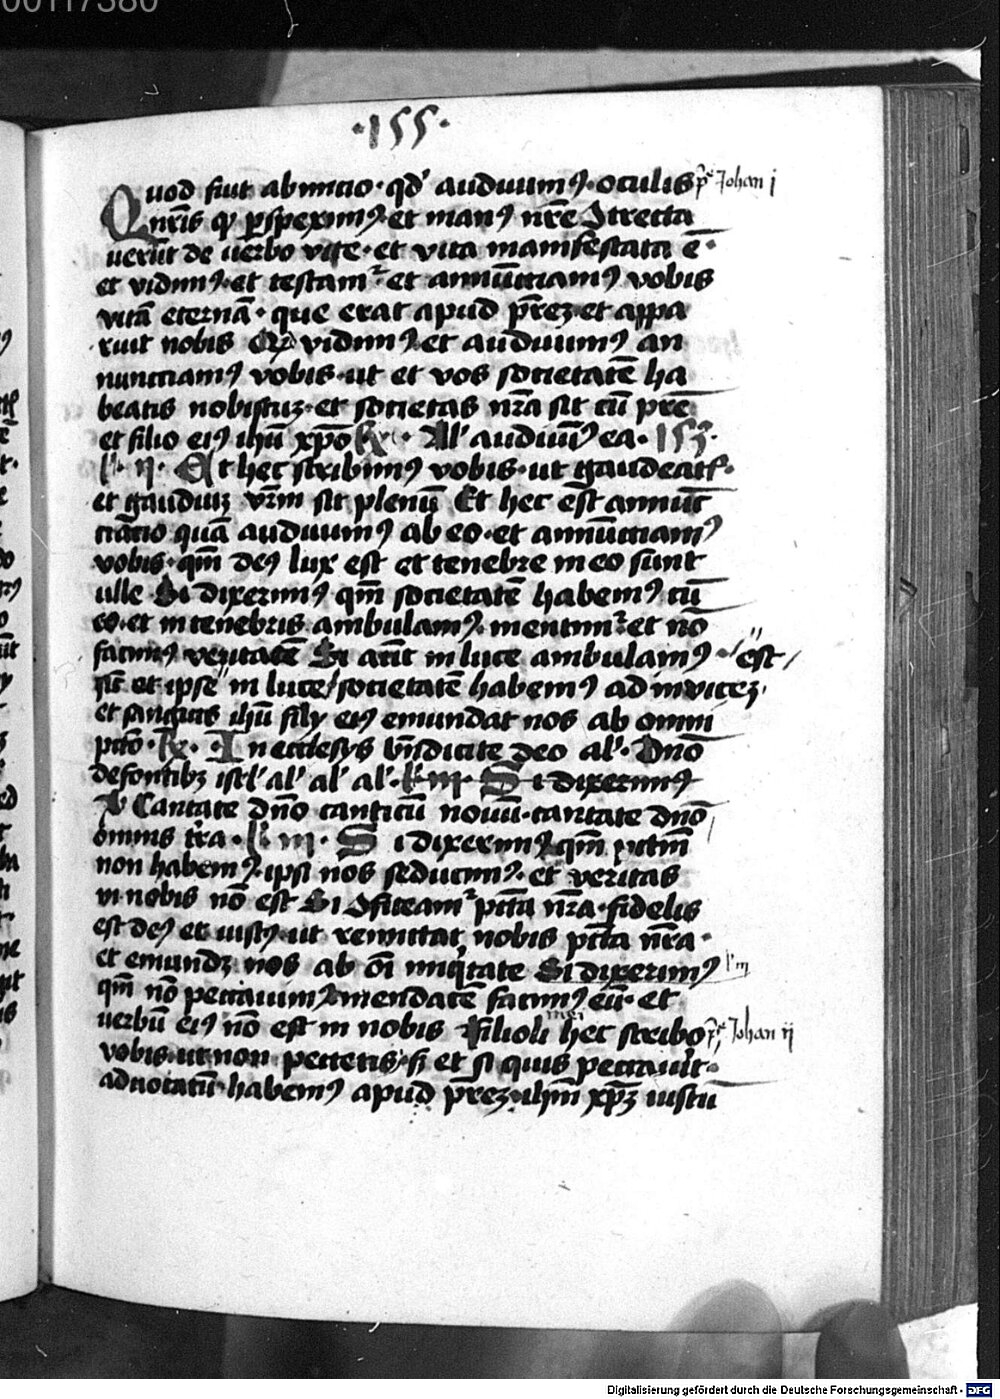 00117380
·155·
Quod fiut ab inicio · qd' audiuim9 · oculis pe Johan i
nr̄is qd ꝑspexim9 · et man9 nr̄e ↄtrecta
uerūt de uerbo vite · et vita manifestata ē ·
et vidim9 · et testam2 et annūctiam9 vobis
vitā eternā · que erat apud pr̄ez et appa
ruit nobis vidim9 et audiuim9 an
nuncciam9 vobis · ut et vos societatē ha
beatis nobiscuz · et societas nr̄a sit cū pr̄e
et filio ei9 ihū xp̄o Rx · Al' audiuiū ea · 153 ·
l' · ij · Et hec scribim9 vobis · ut gaudeatis ·
et gaudiuz vr̄m sit plenū Et hec est annūc
ciācio quā audiuim9 ab eo · et annūcciam9
vobis · qm̄ de9 lux est et tenebre in eo sunt
ulle Si dixerim9 qm̄ societatē habem9 cū
eo · et in tenebris ambulam9 · mentim2 et nō
facim9 veritatē Si aūt in luce ambulaim9 · //est/
sic̄ et ipse // in luce / societatē habem9 ad inuicez ·
et sanguis ihū filij ei9 emundat nos ab omni
pccō · Rx · In ecclesijs bn̄dicite deo al' · Dnō
de fontibz isrl' al' al' al' · l' iij · Si dixerim9
V Cantate dnō canticū nouū · cantate dnō
omnis tr̄a · l' iij · S i dixerim9 qm̄ pctm̄
non habem9 · ipsi nos seducim9 · et veritas
in nobis nō est Si ↄfiteam2 pctā nr̄a · fidelis
est de9 et iust9 · ut remittat nobis pctā nr̄a ·
et emundz nos ab oī iniq̄tate Si dixerim9 l' iij
qm̄ nō peccauim9 · mendacē facim9 eū · et
verbū ei9 nō est in nobis Filioli mei hec scribo pe Johan ij
vobis · ut non peccetis · si et si quis peccauit ·
aduocatū · habem9 apud pr̄ez · ihm̄ xp̄z iustū
Digitalisierung gefördert durch die Deutsche Forschungsgemeinschaft - DFG